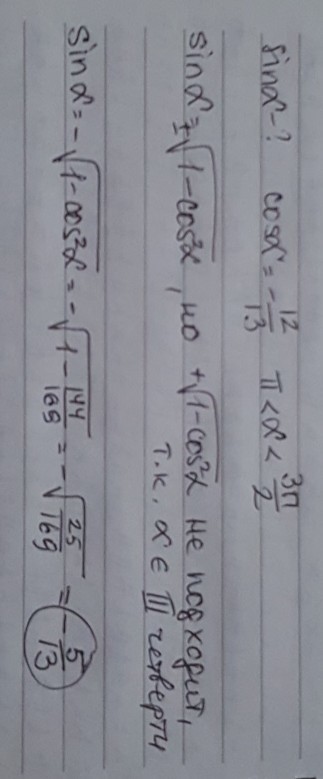 sinα-? cosα = -12/13 π < α < 3π/2
sinα = ±√1-cos²α, но +√1-cos²α не подходит,
т.к. α ∈ III четверти
sinα = -√1-cos²α = -√1-144/169 = -√25/169 = -5/13